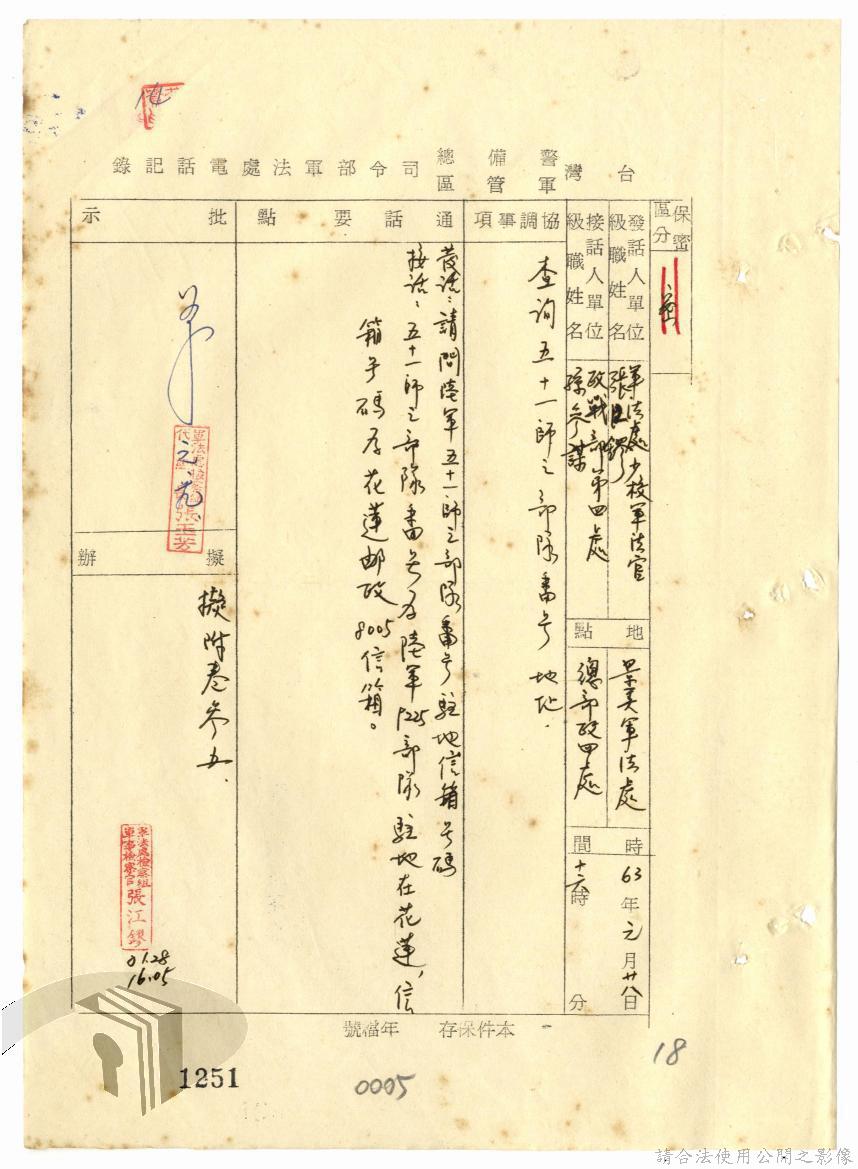 台灣警備總司令部軍法處電話記錄
軍管區
保密區分
密
發話人單位級職姓名
軍法處少校軍法官
張江鏐
地點
景美軍法處
時間
63年元月廿八日
十六時 分
接話人單位級職姓名
政戰部第四處
孫參謀
總部政四處
協調事項
查詢五十一師之部隊番号地址.
通話要點
發話:請問陸軍五十一師之部隊番号駐地信箱号碼
接話:五十一師之部隊番号為陸軍1225部隊駐地在花蓮,信
箱号碼為花蓮邮政8005信箱。
批示
軍法處
代
張玉芳
擬辦
擬附卷參考.
軍法處檢察組
軍事檢察官
張江鏐
01.28
16.05
本件保存 年檔號
1251
0005
18
請合法使用公開之影像